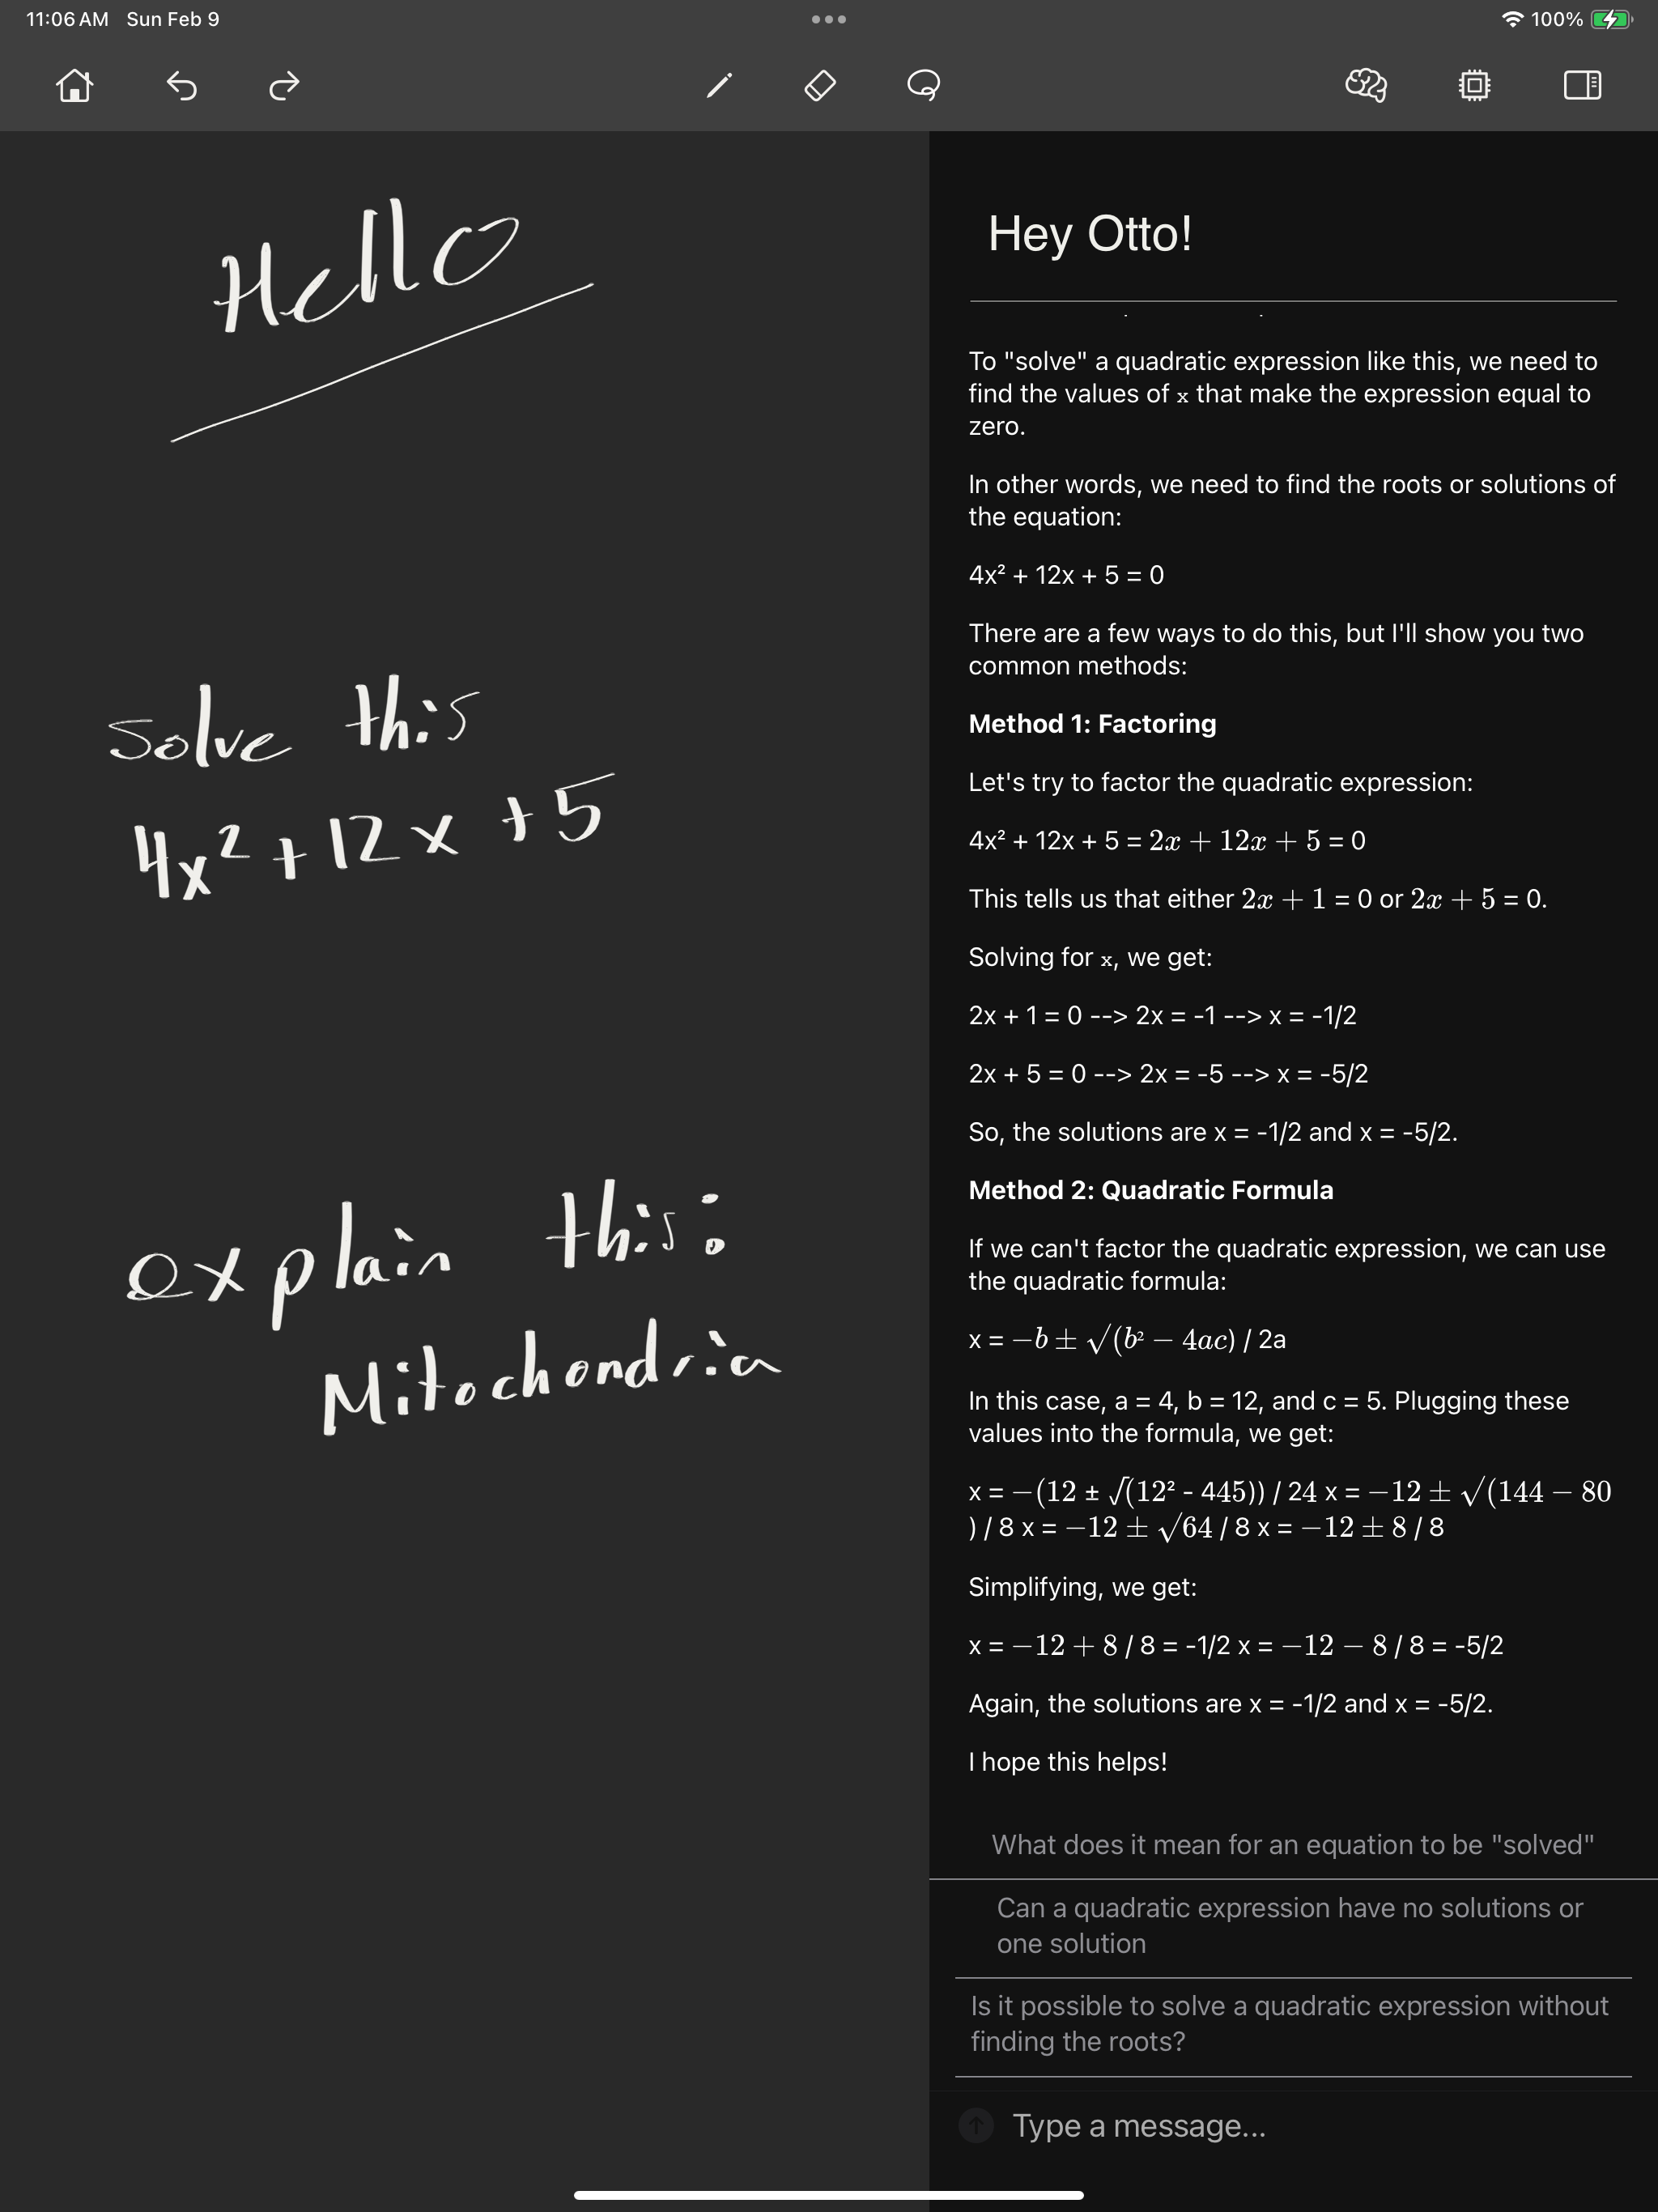 11:06 AM Sun Feb 9
100%
Hello
Solve this
4x² + 12x + 5
explain this:
Mitochondria
Hey Otto!
To "solve" a quadratic expression like this, we need to
find the values of x that make the expression equal to
zero.
In other words, we need to find the roots or solutions of
the equation:
4x² + 12x + 5 = 0
There are a few ways to do this, but I'll show you two
common methods:
Method 1: Factoring
Let's try to factor the quadratic expression:
4x² + 12x + 5 = 2x + 12x + 5 = 0
This tells us that either 2x + 1 = 0 or 2x + 5 = 0.
Solving for x, we get:
2x + 1 = 0 --> 2x = -1 --> x = -1/2
2x + 5 = 0 --> 2x = -5 --> x = -5/2
So, the solutions are x = -1/2 and x = -5/2.
Method 2: Quadratic Formula
If we can't factor the quadratic expression, we can use
the quadratic formula:
x = −b ± √(b² − 4ac) / 2a
In this case, a = 4, b = 12, and c = 5. Plugging these
values into the formula, we get:
x = −(12 ± √(12² - 445)) / 24 x = −12 ± √(144 − 80
) / 8 x = −12 ± √64 / 8 x = −12 ± 8 / 8
Simplifying, we get:
x = −12 + 8 / 8 = -1/2 x = −12 − 8 / 8 = -5/2
Again, the solutions are x = -1/2 and x = -5/2.
I hope this helps!
What does it mean for an equation to be "solved"
Can a quadratic expression have no solutions or
one solution
Is it possible to solve a quadratic expression without
finding the roots?
Type a message...